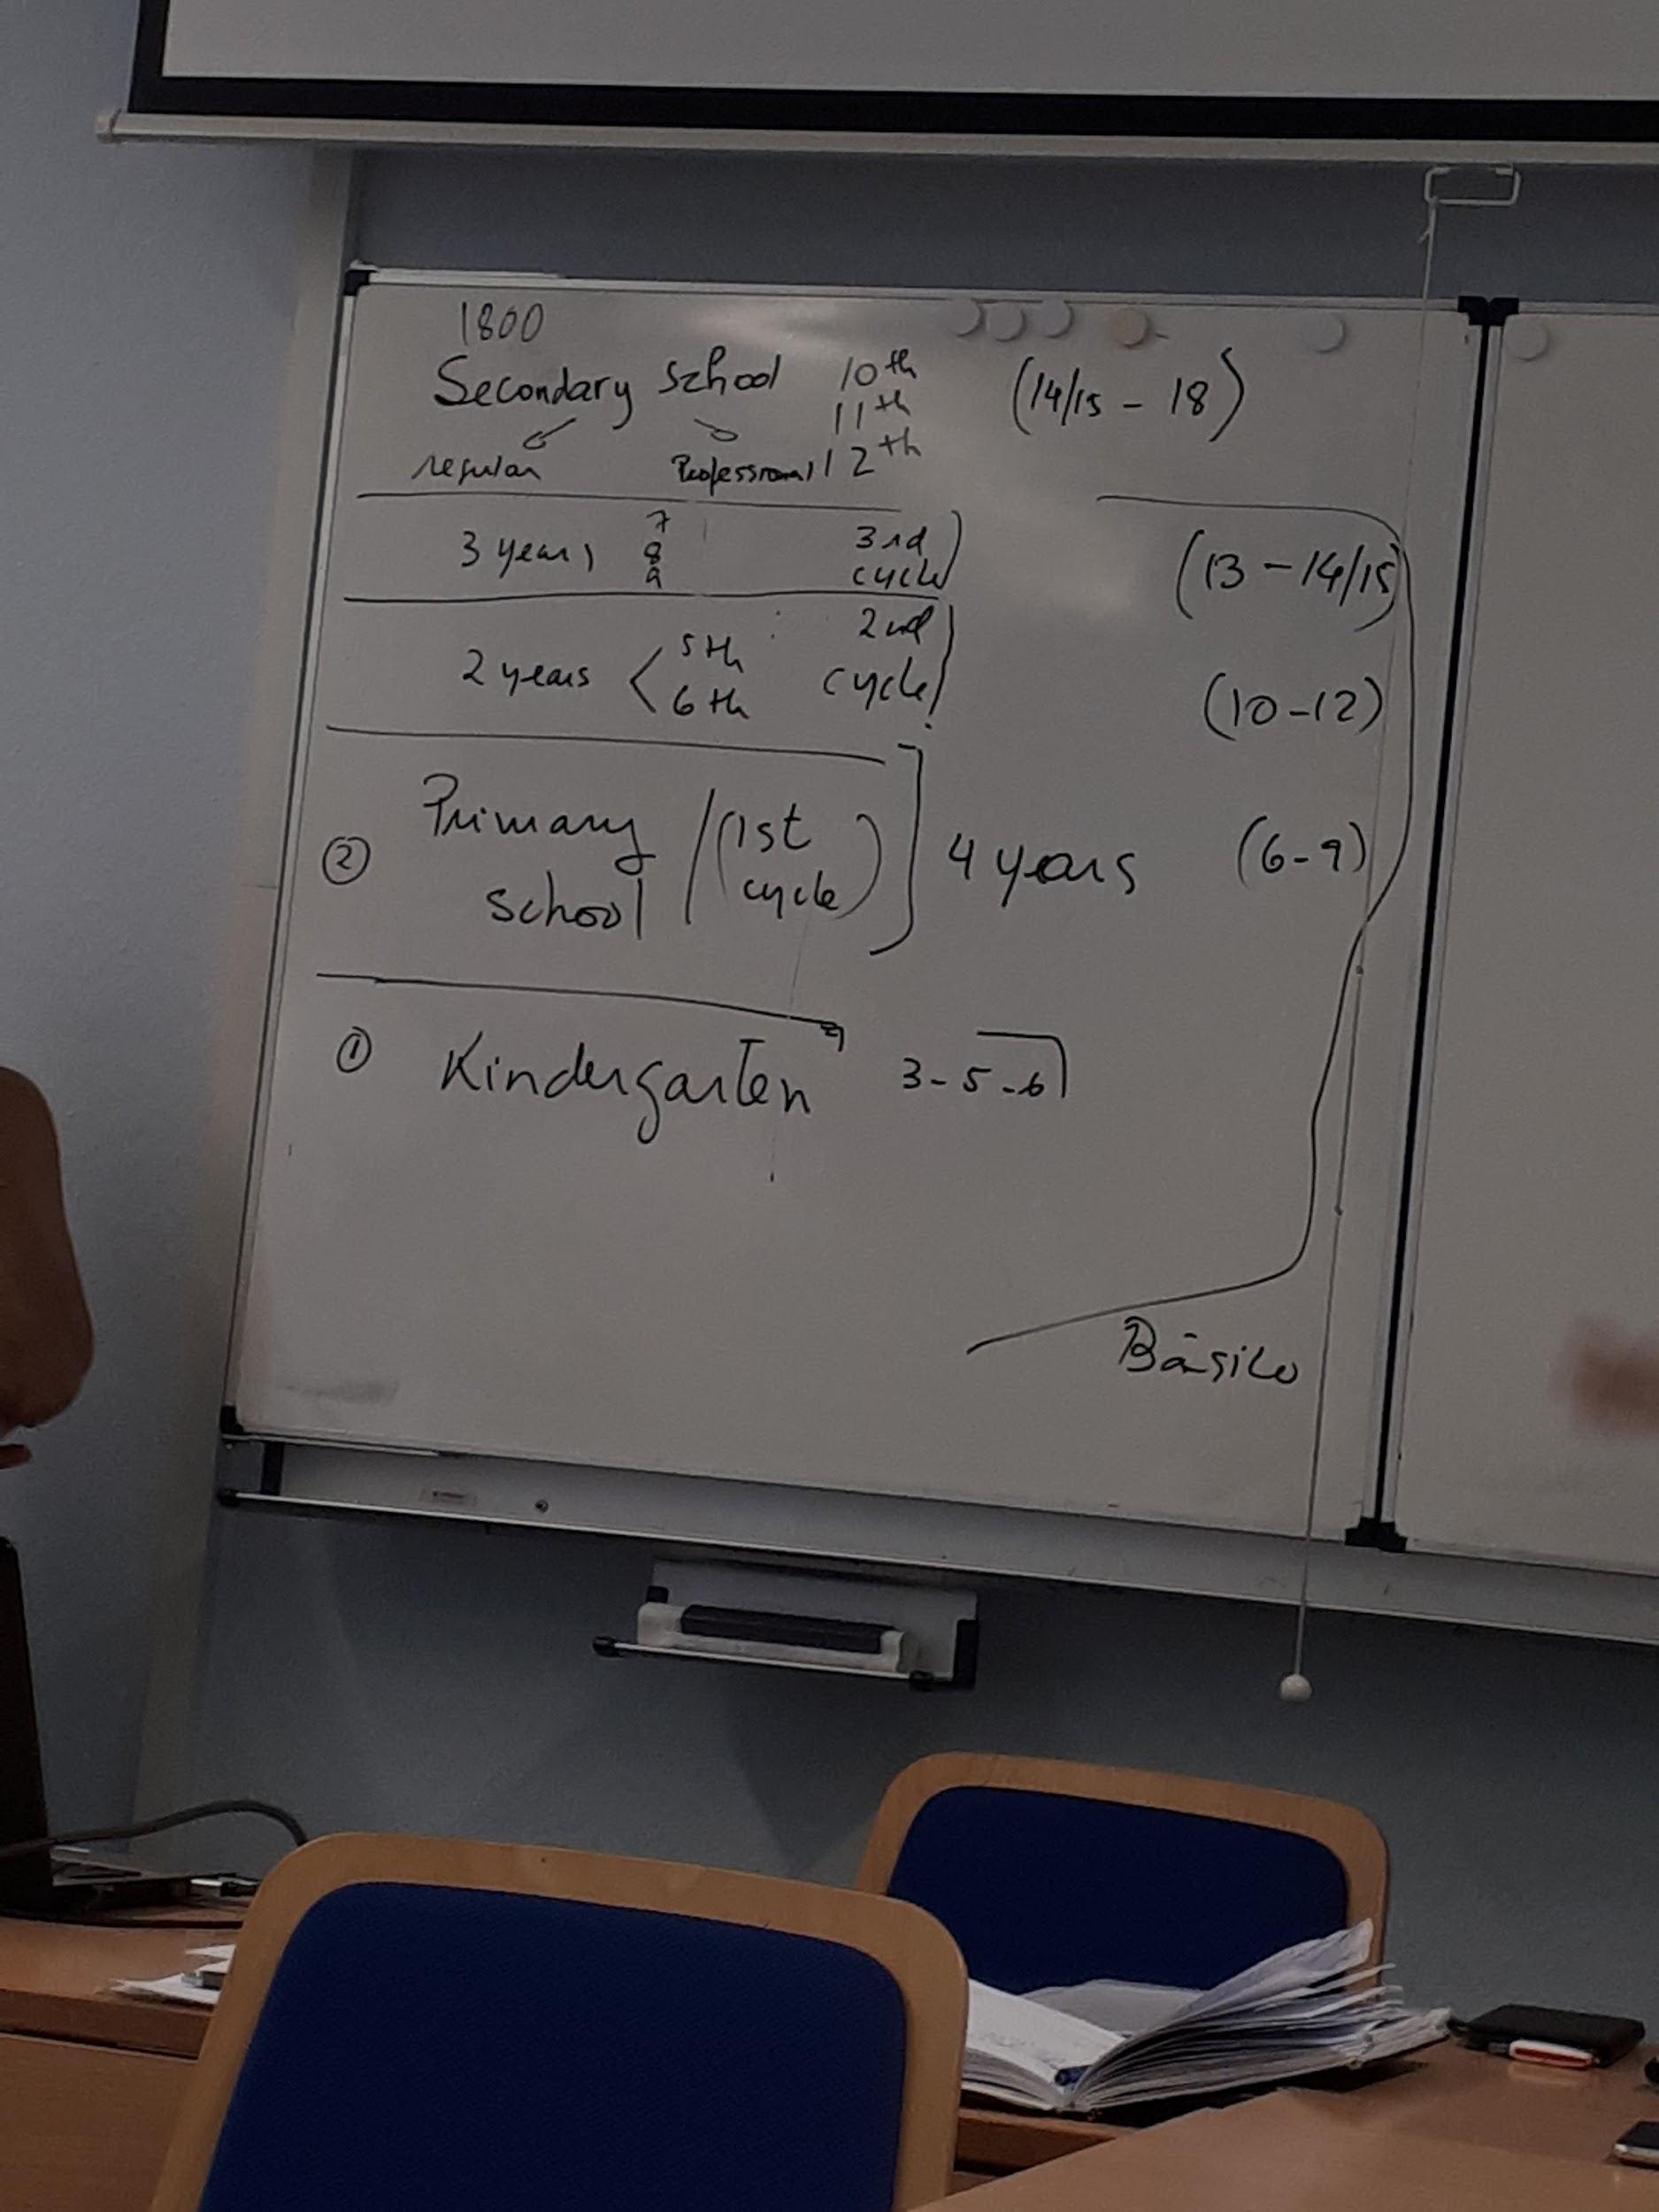 1800
Secondary school 10th (14/15 - 18)
11th
regular Professional 12th
3 years 7 8 9 3rd cycle (13 - 14/15)
2 years < 5th 6th 2nd cycle (10-12)
② Primary school / (1st cycle) ] 4 years (6-9)
① Kindergarten 3-5-6
Básico